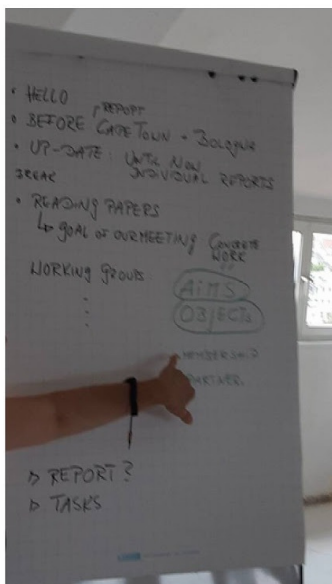 • HELLO
REPORT
• BEFORE CAPE TOWN + BOLOGNA
• UP-DATE: UNTIL NOW
INDIVIDUAL REPORTS
BREAK
• READING PAPERS
↳ GOAL OF OUR MEETING CONCRETE
WORK
WORKING GROUPS:
AIMS
OBJECTS
MEMBERSHIP
PARTNER.
▷ REPORT?
▷ TASKS